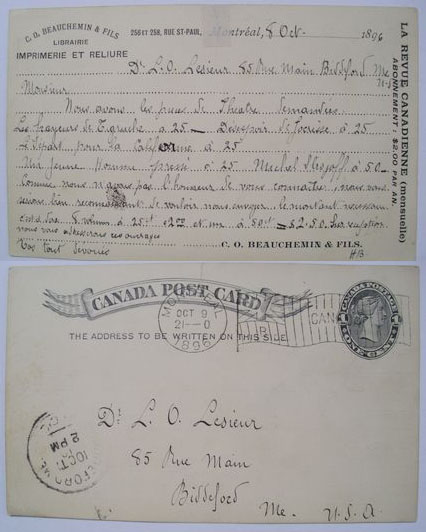 C. O. BEAUCHEMIN & FILS
LIBRAIRIE
IMPRIMERIE ET RELIURE
256 ET 258, RUE ST-PAUL, Montréal, 8 Oct. 1896
LA REVUE CANADIENNE, (mensuelle)
ABONNEMENT : $2.00 PAR AN.
Dr L. O. Lesieur 85 Rue Main Biddeford Me
U-S
Monsieur
Nous avons les pieces de Théatre demandées
Les de à 25 — Desespoir de Jocrisse à 25
Le départ pour la Californie à 25
Un jeune homme pressé à 25 Michel Strogoff à 50 —
Comme nous n'avons pas l'honneur de vous connaitre, nous vous
serons bien de vouloir nous envoyer le montant
8 à 25 et un à 50 = $2.50. Sur reception
nous vous adresserons ces ouvrages
Vos tout devoués
C. O. BEAUCHEMIN & FILS.
HB
CANADA POST CARD
THE ADDRESS TO BE WRITTEN ON THIS SIDE
OCT 9
21—0
CAN
CANADA POSTAGE
ONE CENT
OCT
2 PM
Dr L. O. Lesieur
85 Rue Main
Biddeford
Me. U.S.A.